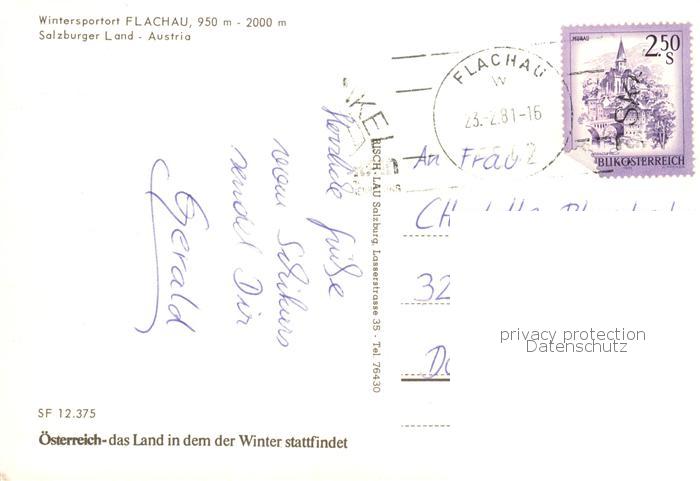 Wintersportort FLACHAU, 950 m - 2000 m
Salzburger Land - Austria
Herzliche Grüße
vom Schikurs
sendet Dir
Gerald
RISCH-LAU Salzburg, Lasserstrasse 35 · Tel. 76430
FLACHAU
23.-2.81-16
MURAU
2.50
S
BLIKÖSTERREICH
An Frau
32
privacy protection
Datenschutz
SF 12.375
Österreich-das Land in dem der Winter stattfindet